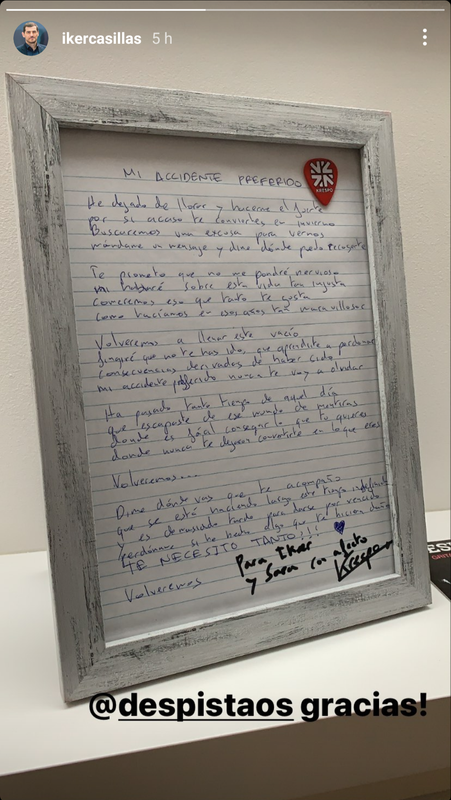 ikercasillas 5 h
MI ACCIDENTE PREFERIDO
KRESPO
He dejado de llorar y hacerme el fuerte
por si acaso te conviertes en invierno
Buscaremos una excusa para vernos
mándame un mensaje y dime dónde puedo recogerte
Te prometo que no me pondré nervioso
ni hablaré sobre esta vida tan injusta
conoceremos eso que tanto te gusta
como hacíamos en esos años tan maravillosos
Volveremos a llenar este vacío
fingiré que no te has ido, que aprendiste a perdonar
consecuencias derivadas de haber sido
mi accidente preferido nunca te voy a olvidar
Ha pasado tanto tiempo de aquel día
que escapaste de ese mundo de mentiras
donde es fácil conseguir lo que tú quieres
donde nunca te dejan convertirte en lo que eres
Volveremos...
Dime dónde vas que te acompaño
que se está haciendo largo este tiempo indefinido
y es demasiado tarde para darse por vencido
Perdóname si he hecho algo que te hiciera daño
TE NECESITO TANTO!!!
Volveremos
Para Iker
y Sara con afecto
Krespo
@despistaos gracias!